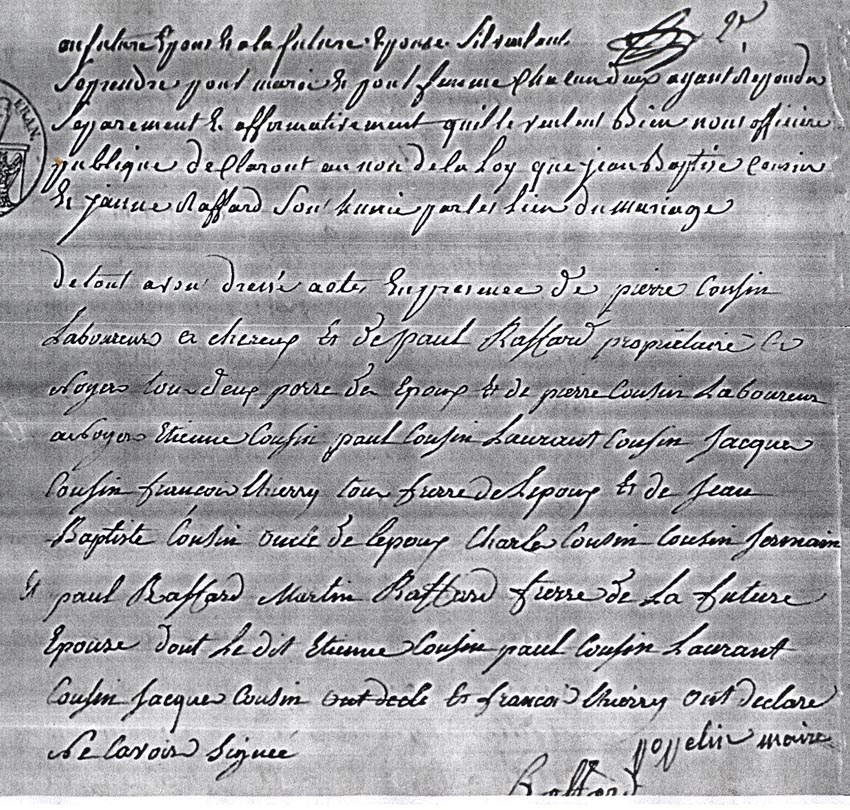 au future Epoux & a la future Epouse Sil veulent
Se prendre pour marie & pour femme Chacun deux ayant Repondu
Separement & afformativement quil le veulent Bien nous officiere
publique declaront au non de la Loy que jean Baptise Cousin
Et janne Raffard Son hunie par les Lien du mariage
de tout avon dressé acte En presence de pierre Cousin
Laboureur a chereux & de paul Raffard proprietaire a
Noyers tou deux perre des Epoux & de pierre Cousin Laboureur
a noyers Etienne Cousin paul Cousin Laurant Cousin Jacque
Cousin francois thierry tou frerre de Lepoux & de Jean
Baptiste Cousin oncle de lepoux Charle Cousin Cousin Jermain
Et paul Raffard Martin Raffard frerre de La future
Epouse dont Le dit Etienne Cousin paul Cousin Laurant
Cousin Jacque Cousin ont decle & francoi thierry ont declare
Ne Savoir Signée
popelin maire
Raffard